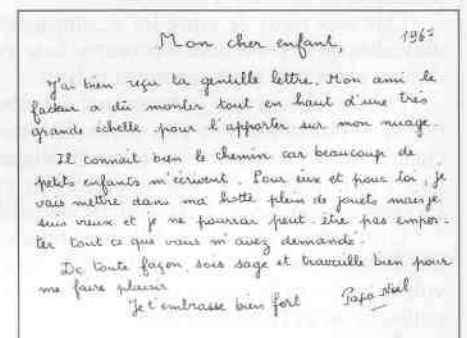 Mon cher enfant, 1962
J'ai bien reçu ta gentille lettre. Mon ami le
facteur a dû monter tout en haut d'une très
grande échelle pour l'apporter sur mon nuage.
Il connait bien le chemin car beaucoup de
petits enfants m'écrivent. Pour eux et pour toi, je
vais mettre dans ma hotte plein de jouets mais je
suis vieux et je ne pourrai peut-être pas empor-
ter tout ce que vous m'avez demandé.
De toute façon, sois sage et travaille bien pour
me faire plaisir
Je t'embrasse bien fort Papa Noël